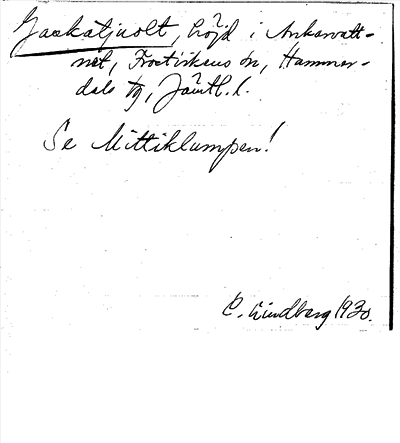 Gaskatjuolt, höjd i Ankarvatt-
net, Frostvikens sn, Hammer-
dals tg, Jämtl. l.
Se Mittiklumpen!
C. Lindberg 1930.